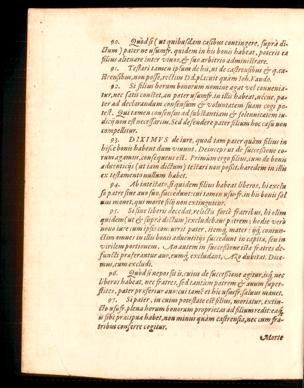 90. Quòd si (ut quibusdam casibus contingere, suprà di-
ctum) pater ne usumf. quidem in his bonis habeat, poterit ea
filius alienare inter vivos, & suo arbitrio administrare.
91. Testari tamen ipsum de his, ut de castrensibus & q. ca-
strensibus, non posse, rectius
92. Si filius horum bonorum nomine agat vel convenia-
tur, nec satis constet, an pater usumf. in illis habeat, necne, pa-
ter ad declarandum consensum & voluntatem suam cogi po-
test. Qui tamen consensus ad substantiam & solennitatem iu-
dicij non est necessarius. Sed defendere pater filium hoc casu non
compellitur.
93. DIXIMVS de iure, quod tam pater quàm filius in
hisce bonis habent dum vivunt. Deinceps ut de successione eo-
rum agamus, consequens est. Primùm ergo filius, cum de bonis
adventicijs (ut iam dictum) testari non possit, haredem in illis
ex testamento nullum habet.
94. Ab intestato, si quidem filius habeat liberos, hi exclu-
so patre sine avo suo, succedunt: nec tamen ususf. in his bonis sal-
vus manet, qui morte filij non extinguitur.
95. Si sine liberis decedat, relictis fratribus, hi olim
quidem (ut & suprà dictum) excludebant patrem: hodie verò
novo iure cum ipsis concurrit pater, item mater:
ctim omnes in illis bonis adventicijs succedunt in capita, seu in
virilem portionem. An autem in successione illa fratres de-
functi praeferantur avo, eumq; excludant, Dice-
mus, eum excludi.
96. Quòd si nepos sit is, cuius de successione agitur, isq; nec
liberos habeat, nec fratres, sed tantùm patrem & avum super-
stites, pater praefertur avo: cui tamen et hic ususfr. salvus manet.
97. Si pater, in cuius potestate est filius, moriatur, extin-
cto usufr. plena horum bonorum proprietas ad filium redit: eaq;
is sibi praecipua habet, non minùs quàm castrensia, nec cum fra-
tribus conferre cogitur.
Morte